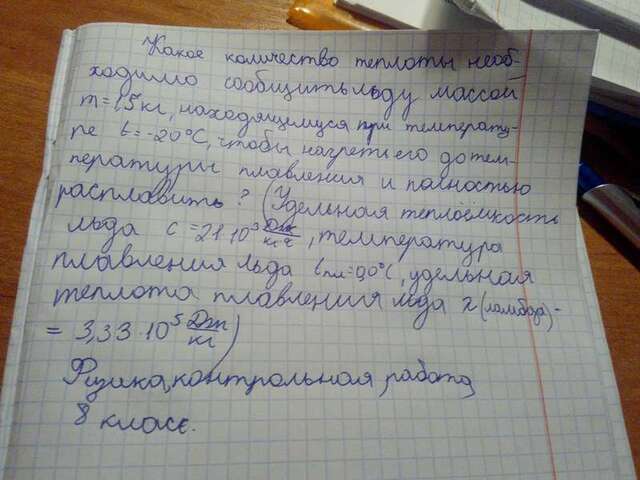 Какое количество теплоты необ-
ходимо сообщить льду массой
m = 1,5 кг, находящимуся при температу-
ре t = -20°C, чтобы нагреть его до тем-
пературы плавления и полностью
расплавить? (Удельная теплоёмкость
льда c = 2,1·10³ Дж/кг·°C, температура
плавления льда tпл = 0,0°C, удельная
теплота плавления льда λ (ламбда) -
= 3,33·10⁵ Дж/кг)
Физика, контрольная работа,
8 класс.